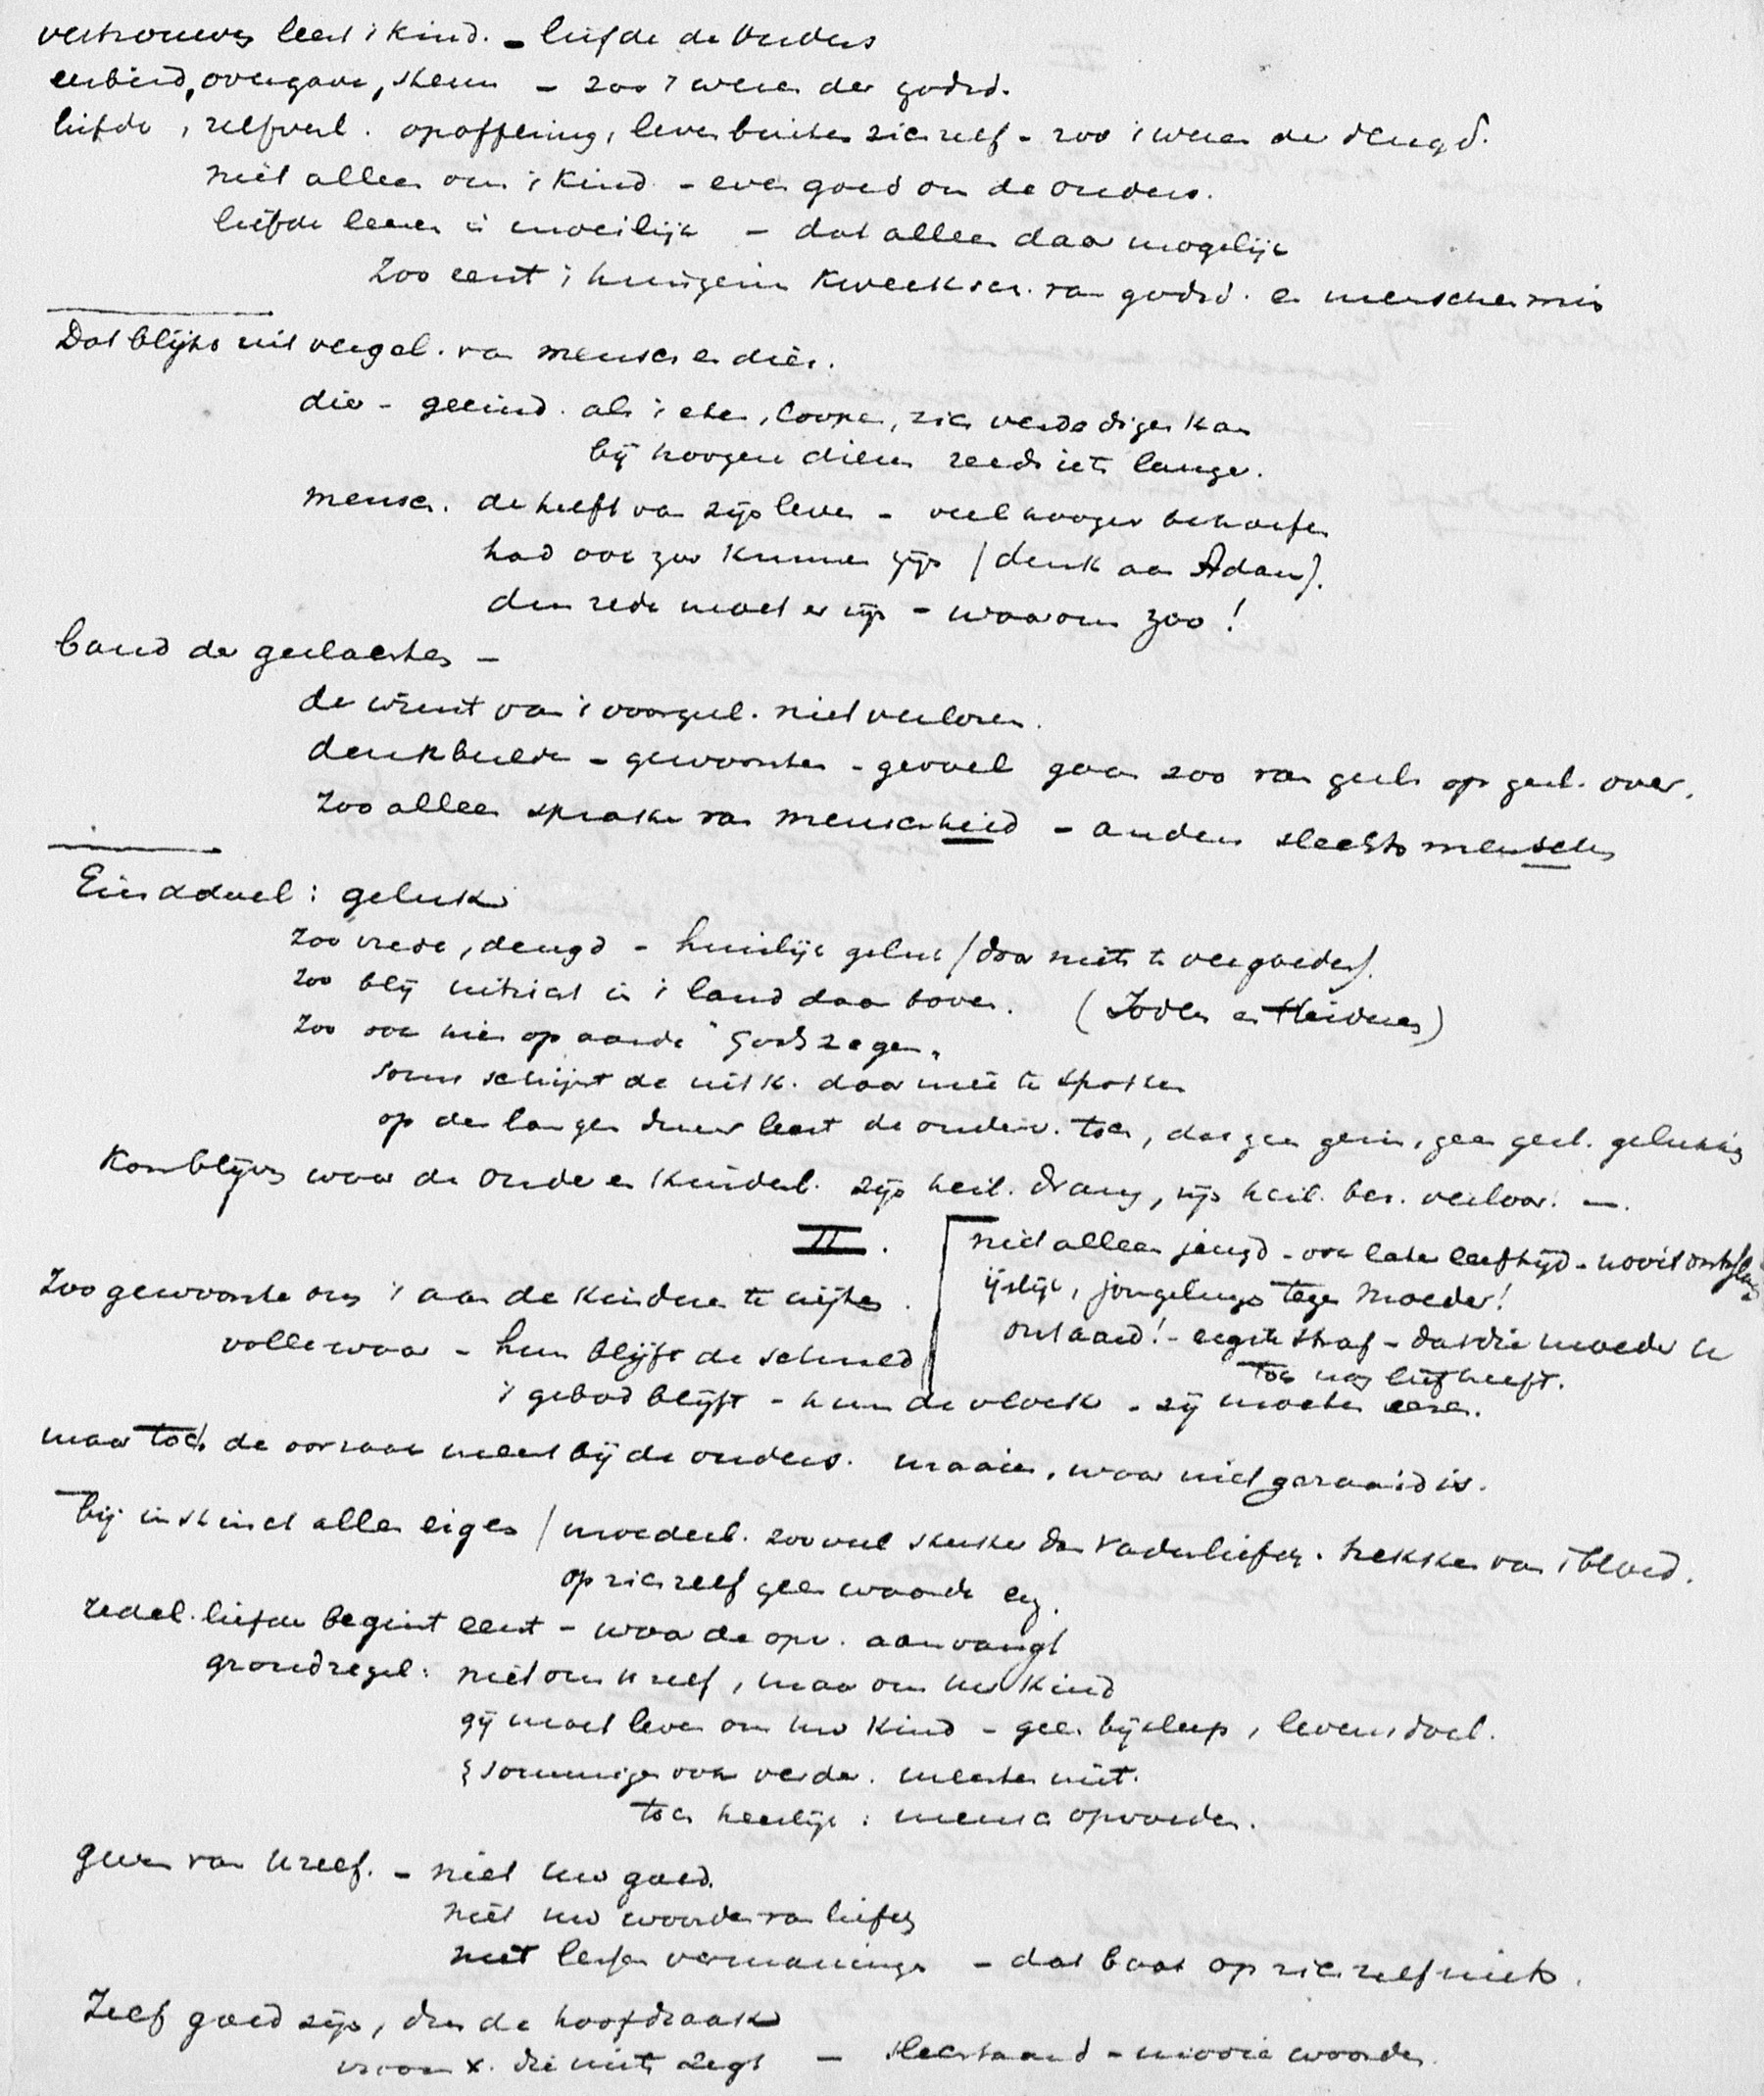 vertrouwen leert 't kind. - liefde de ouders
eerbied, overgave, steun - zoo 't wezen der godsd.
liefde, zelfverl. opoffering, leven buiten zich zelf - zoo 't wezen der deugd.
niet alleen om 't kind - even goed om de ouders.
liefde leeren is moeilijk - dat alleen daar mogelijk
Zoo eerst 't huisgezin kweeksch. van godsd. en menschenmin
Dat blijkt uit vergel. van mensch en dier.
dier - geëind. als 't eten, loopen, zich verdedigen kan
bij hoogere dieren reeds iets langer.
mensch. de helft van zijn leven - veel hooger behoeften
had ook zoo kunnen zijn (denk aan Adam).
dus rede moet er zijn - waarom zoo!
band der geslachten -
de winst van 't voorgesl. niet verloren.
denkbeelden - gewoonten - gevoel gaan zoo van gesl. op gesl. over.
Zoo alleen sprake van menschheid - anders slechts menschen
Einddoel: geluk
zoo vrede, deugd - huislijk geluk (door niets te vergoeden).
zoo blij uitzicht in 't land daar boven. (Joden en Heidenen)
zoo ook hier op aarde "Gods zegen"
soms schijnt de uitk. daarmeê te spotten
op den langen duur leert de onderv. toch, dat geen gezin, geen gesl. gelukkig
kon blijven waar de ouder en kinderl. zijn heil. drang, zijn heil. verloor. -.
II.
niet alleen jeugd - ook later leeftijd - nooit ontslag
ijslijk, jongelings tegen moeder!
ontaard! - ergste straf - dat die moeder u
toch nog liefheeft.
Zoo gewoonte om 't aan de kinderen te wijten.
volle waar - hun blijft de schuld
't gebod blijft - hun de vloek - zij moeten eeren.
maar toch de oorzaak meest bij de ouders. maaien, waar niet gezaaid is.
bij instinct allen eigen (moederl. zooveel sterker dan vaderliefde. trekken van 't bloed.
op zich zelf geen waarde
redel. liefde begint eerst - waar de opv. aanvangt
grondregel: niet om u zelf, maar om uw kind
gij moet leven om uw kind - geen bijloop, levensdoel.
sommigen ook verder. meesten niet.
toch heerlijk: mensch opvoeden.
geven van u zelf. - niet uw goed.
niet uw woorden van liefde
niet lessen vermaningen - dat baat op zich zelf niets.
Zelf goed zijn, dus de hoofdzaak
vrouw X. die niets zegt - slechtaard - mooie woorden.